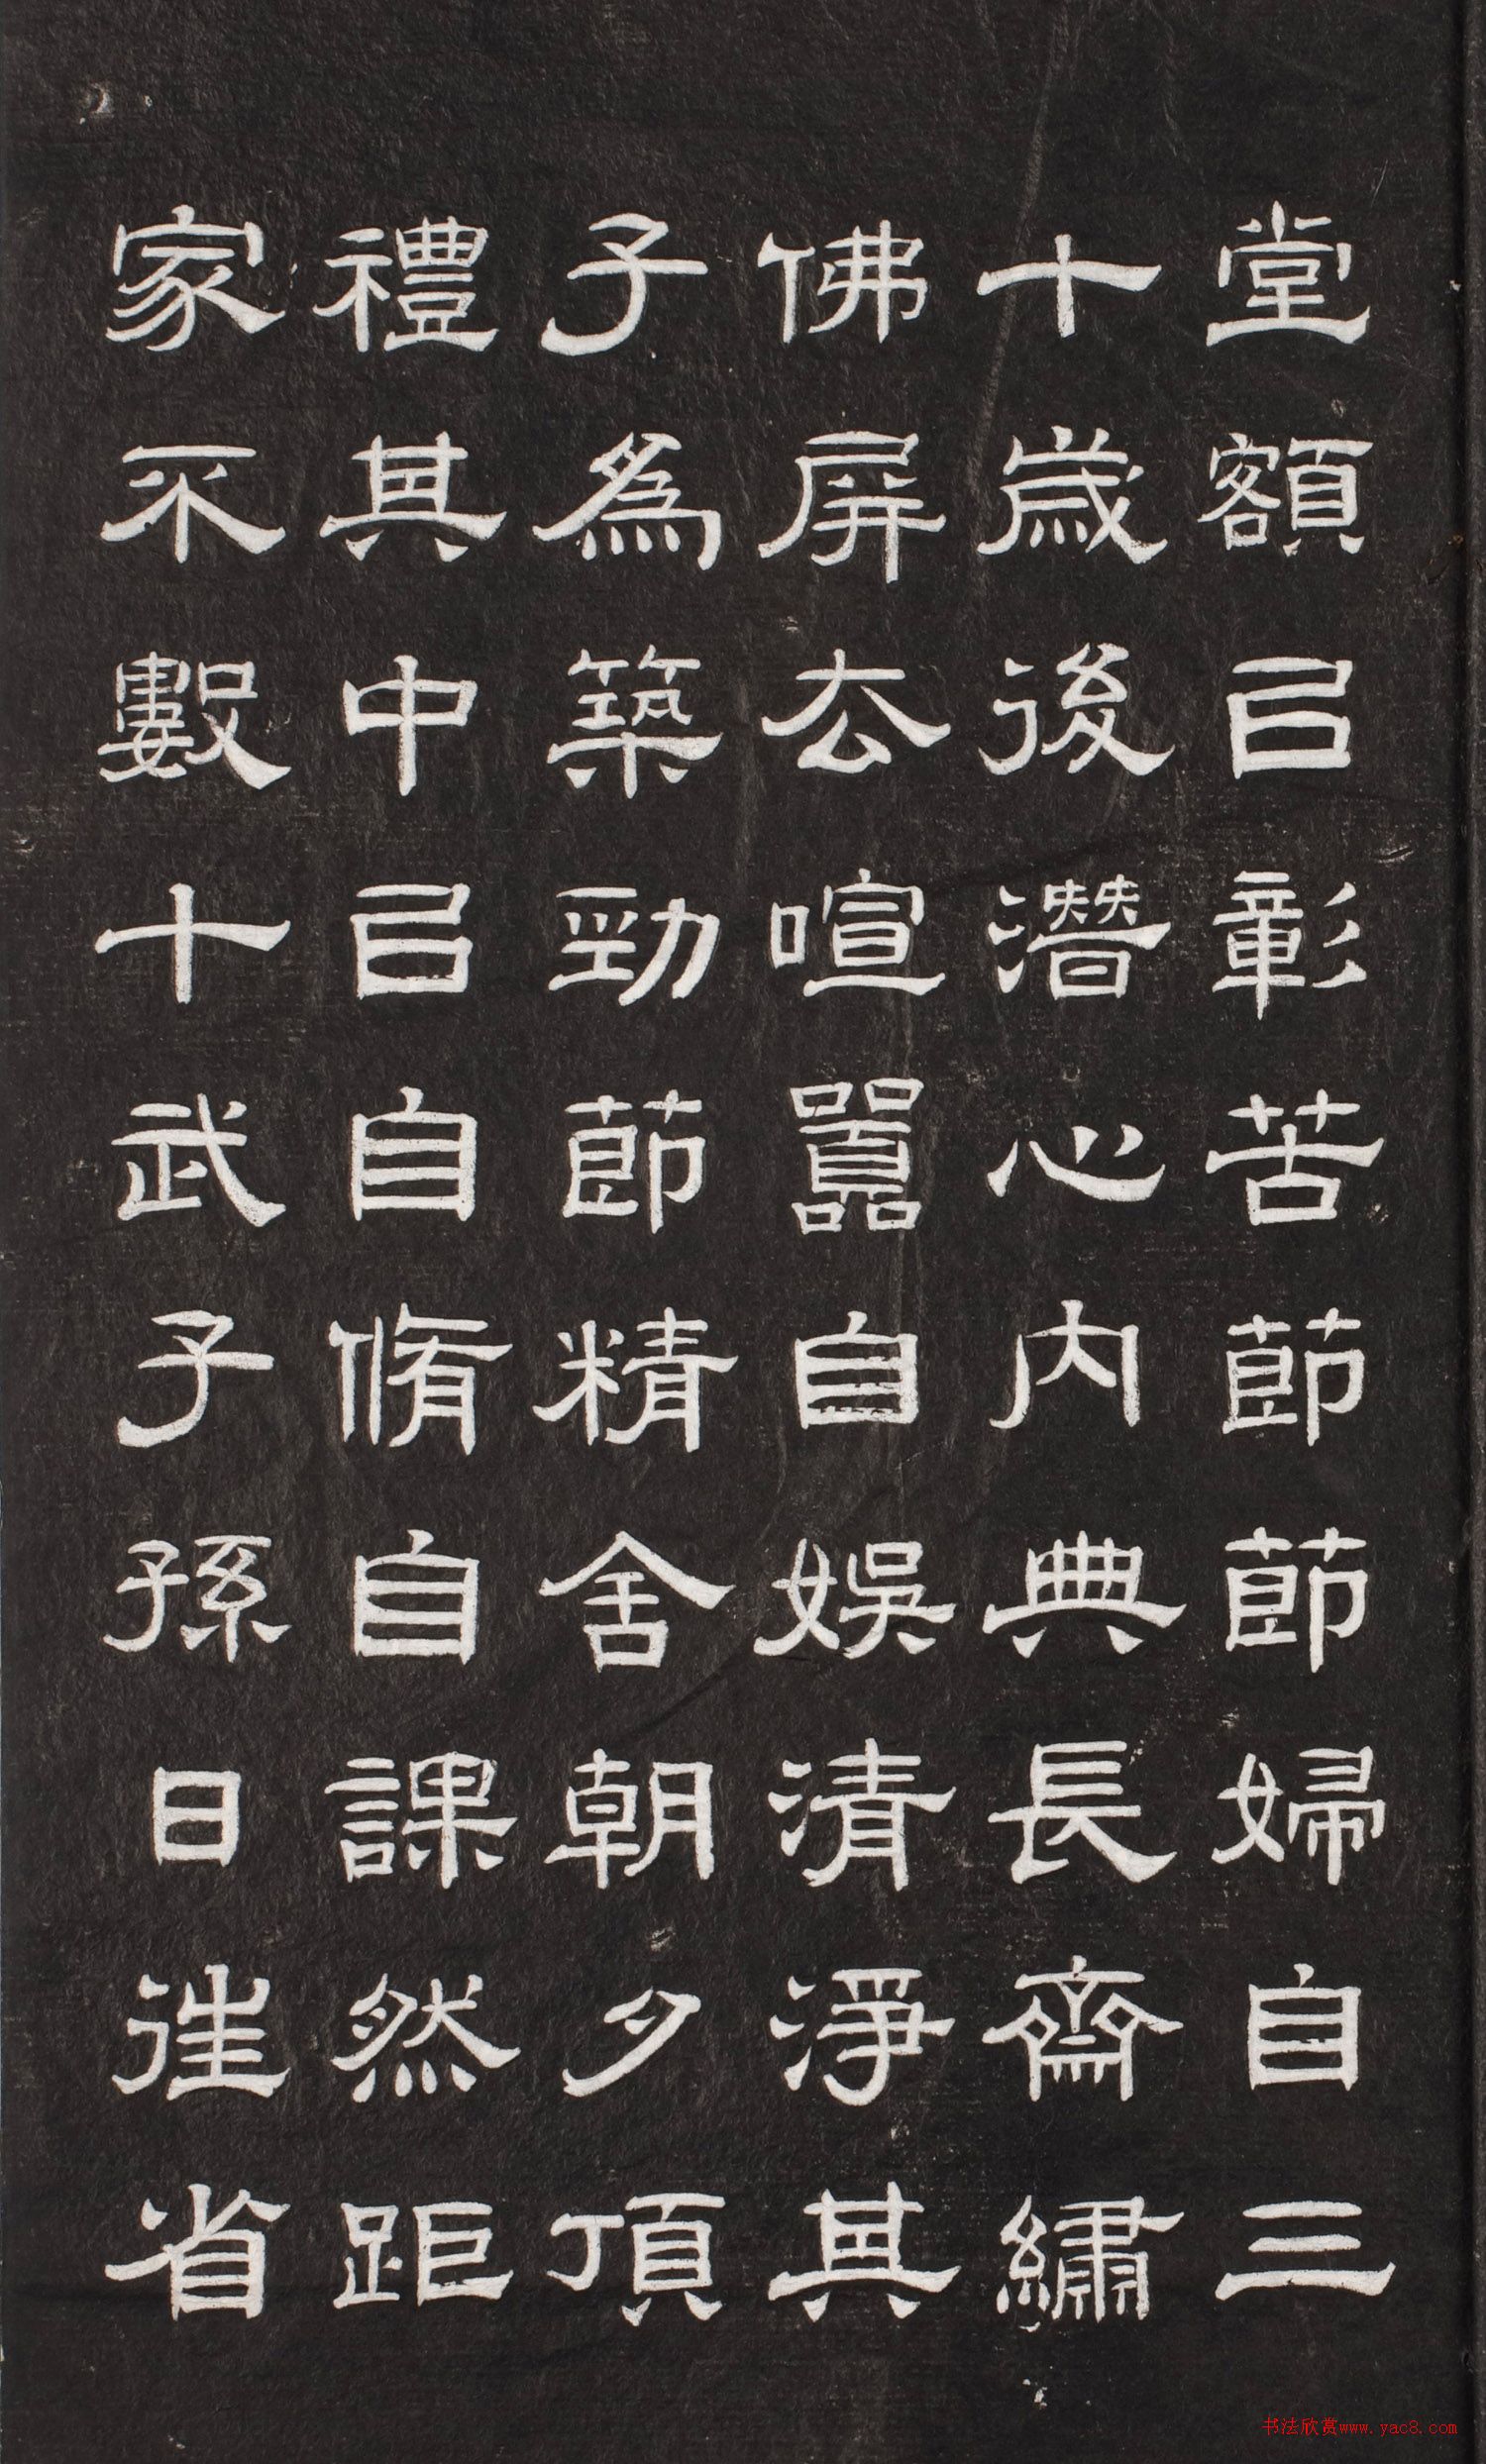 堂額㠯彰苦節節婦自三
十歲後潛心內典長齋繡
佛屏厺喧嚻自娛清淨其
子為築勁節精舍朝夕頂
禮其中㠯自脩自課然距
家不數十武子孫日往省
书法欣赏www.yac8.com